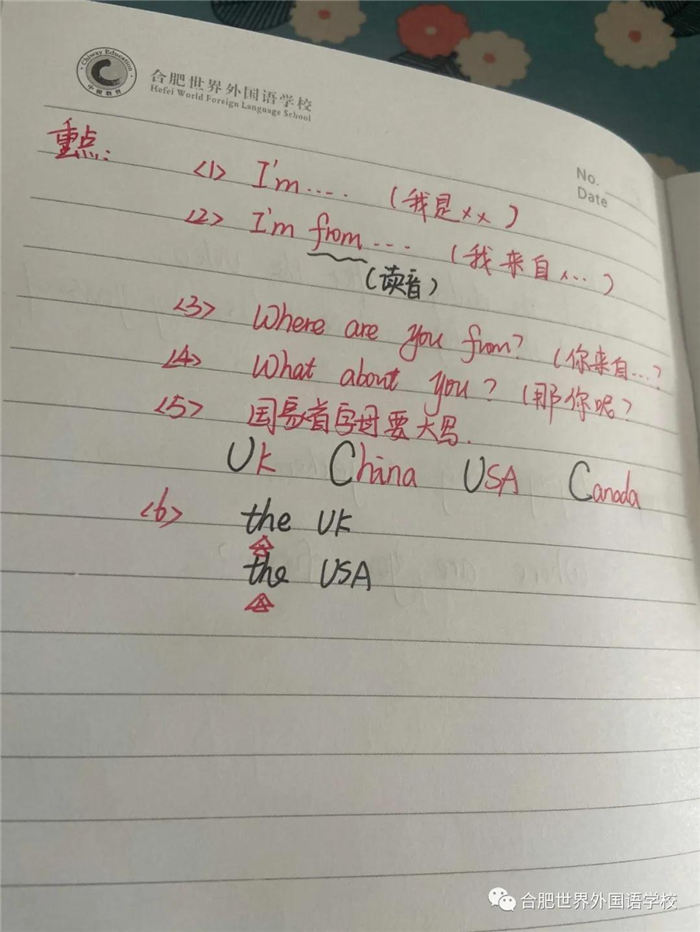 Chiway Education
中锐教育
合肥世界外国语学校
Hefei World Foreign Language School
No.
Date
重点:
<1> I'm.... (我是××)
<2> I'm from... (我来自×...)
(读音)
<3> Where are you from? (你来自...?
<4> What about you? (那你呢?
<5> 国家首字母要大写.
UK China USA Canada
<6> the UK
the USA
合肥世界外国语学校